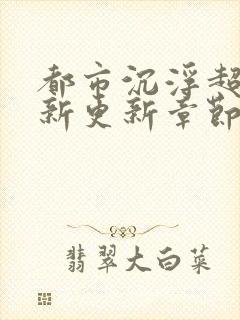 都市沉浮超
新更新章节
翡翠大白菜